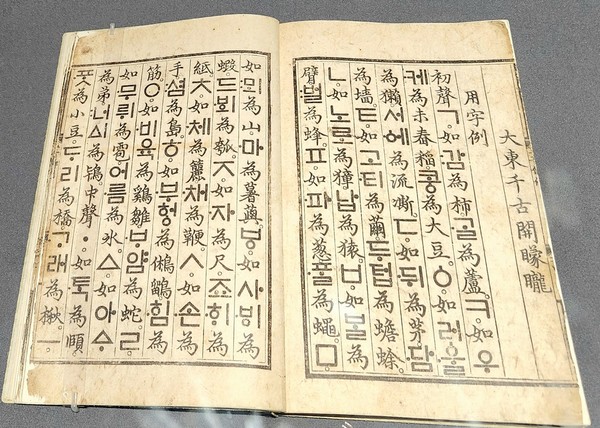 大東千古開朦朧
用字例
初聲ㄱ。如감為柿。ᄀᆞᆯ為蘆。ㅋ。如우
케為未舂稻。콩為大豆。ㆁ。如러울
為獺。서에為流凘。ㄷ。如뒤為茅。담
為墻。ㅌ。如고티為繭。두텁為蟾蜍。
ㄴ。如노로為獐。납為猿。ㅂ。如ᄇᆞᆯ為
臂。벌為蜂。ㅍ。如파為葱。ᄑᆞᆯ為蠅。ㅁ。
如뫼為山。마為薯藇。ㅸ。如사ᄫᅵ為
蝦。드ᄫᅴ為瓠。ㅈ。如자為尺。죠ᄒᆡ為
紙。ㅊ。如체為籭。채為鞭。ㅅ。如손為
手。셤為島。ㅎ。如부헝為鵂鶹。힘為
筋。ㅇ。如비육為鷄雛。ᄇᆞ얌為蛇。ㄹ。
如무뤼為雹。어름為氷。ㅿ。如아ᅀᆞ
為弟。너ᅀᅵ為鴇。中聲ㆍ。如ᄐᆞᆨ為頤。
ᄑᆞᆺ為小豆。ᄃᆞ리為橋。ᄀᆞ래為楸。ㅡ。